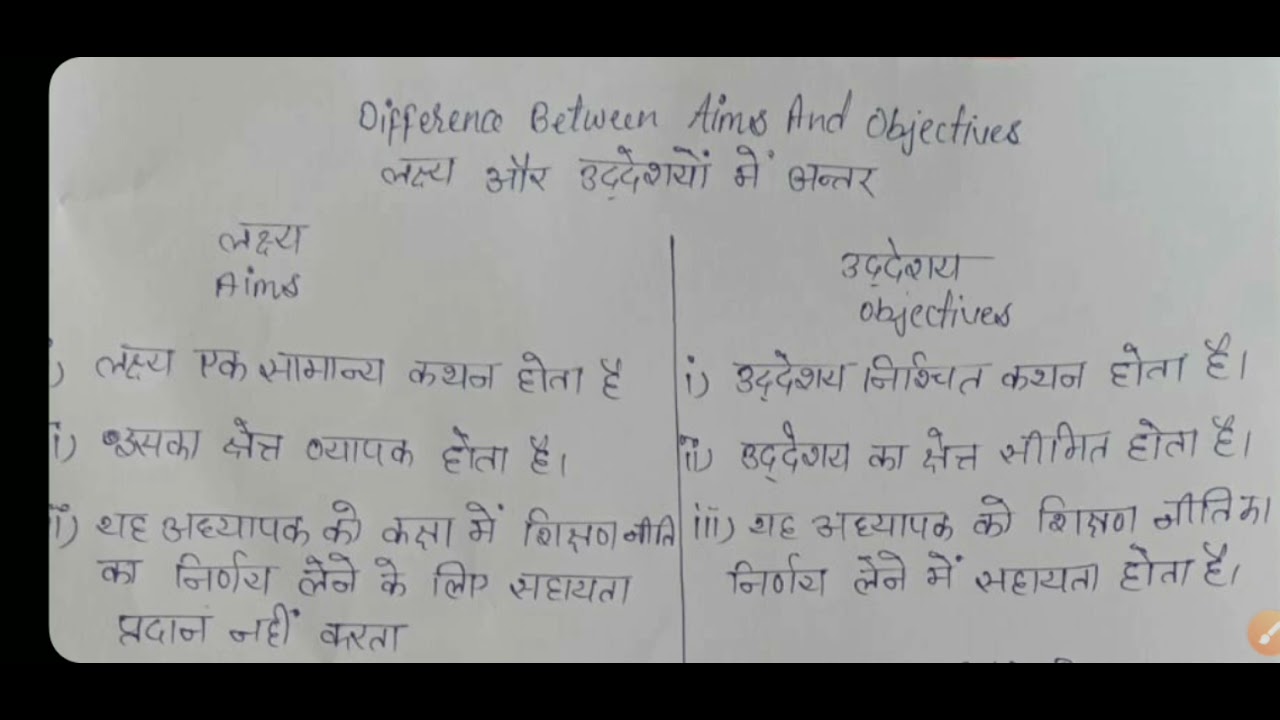 Difference Between Aims And Objectives
लक्ष्य और उद्देशयों में अन्तर
लक्ष्य
Aims
i) लक्ष्य एक सामान्य कथन होता है
ii) इसका क्षेत्त व्यापक होता है।
iii) यह अध्यापक को कक्षा में शिक्षण नीति
का निर्णय लेने के लिए सहायता
प्रदान नहीं करता
उद्देशय
objectives
i) उद्देशय निश्चित कथन होता है।
ii) उद्देशय का क्षेत्त सीमित होता है।
iii) यह अध्यापक को शिक्षण नीति का
निर्णय लेने में सहायता होता है।